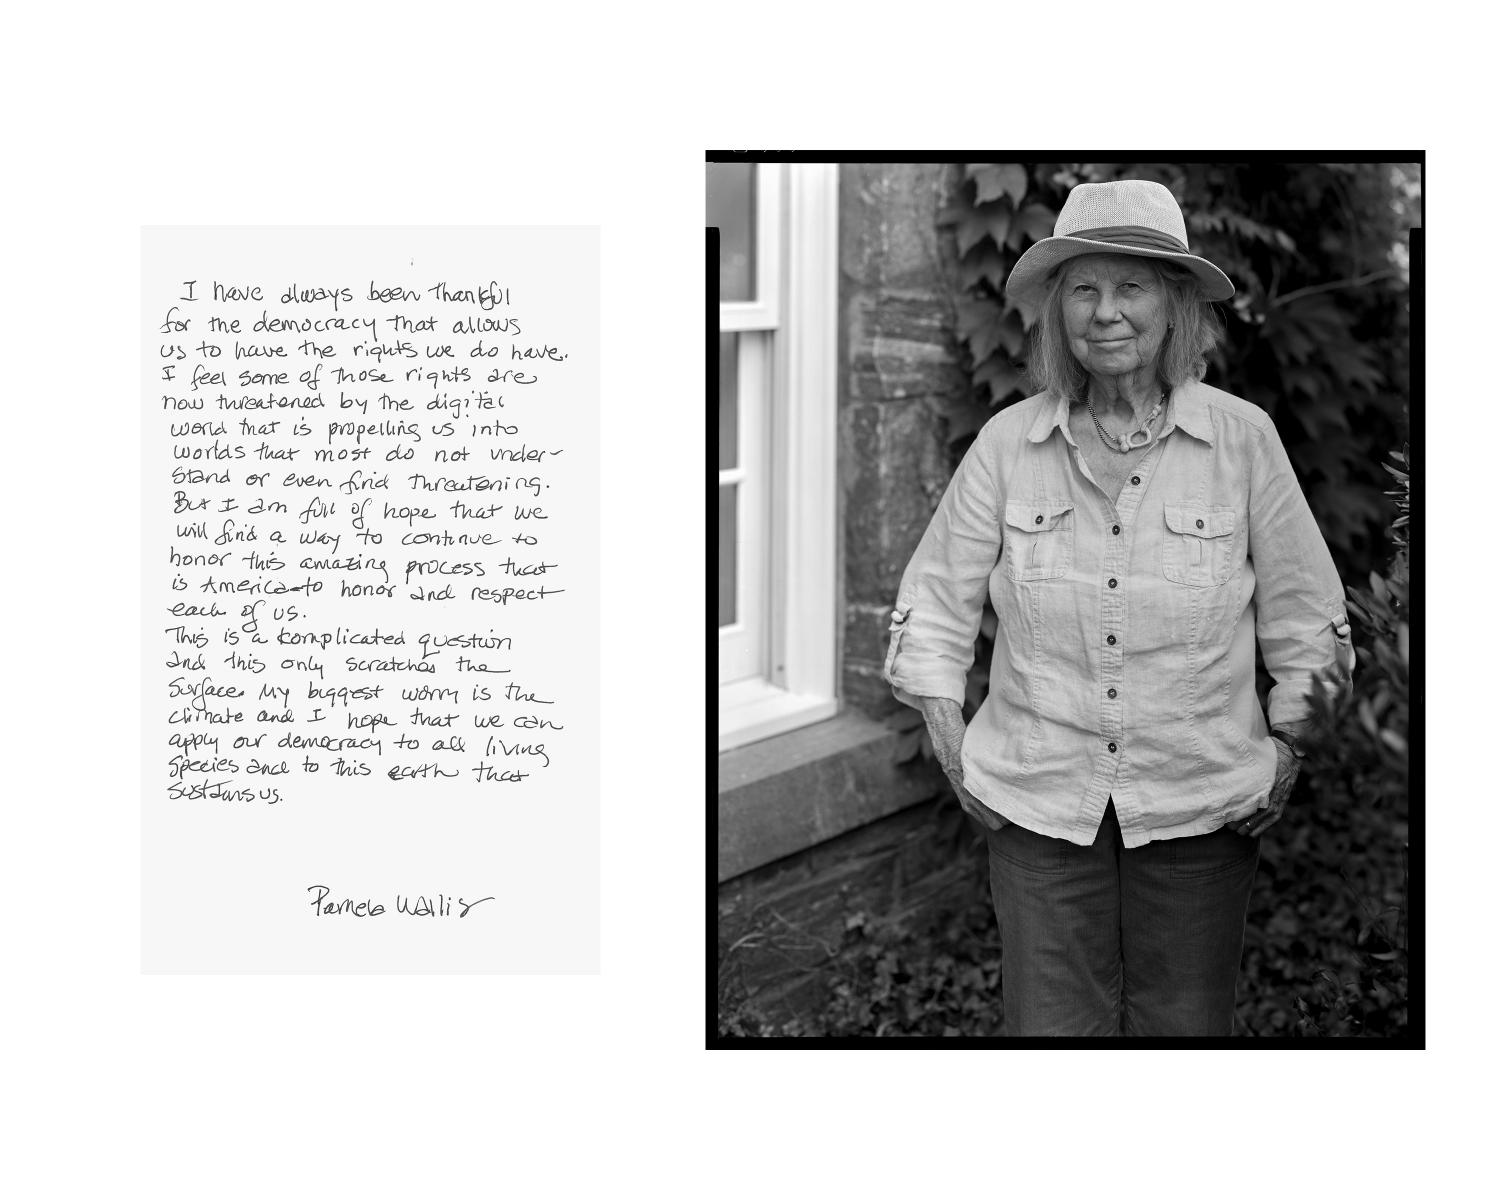 I have always been thankful
for the democracy that allows
us to have the rights we do have.
I feel some of those rights are
now threatened by the digital
world that is propelling us into
worlds that most do not under-
stand or even find threatening.
But I am full of hope that we
will find a way to continue to
honor this amazing process that
is America-to honor and respect
each of us.
This is a complicated question
and this only scratches the
surface. My biggest worry is the
climate and I hope that we can
apply our democracy to all living
species and to this earth that
sustains us.
Pamela Wallis